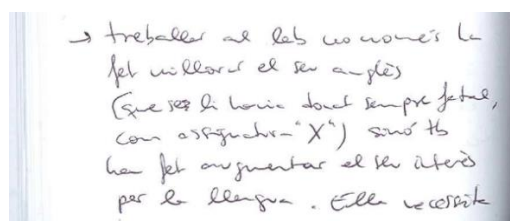 → treballar al lab no només l'ha
fet millorar el seu anglès
(que se li havia donat sempre fatal,
com assignatura "X") sinó tb
ha fet augmentar el seu interès
per la llengua. Ella necessita